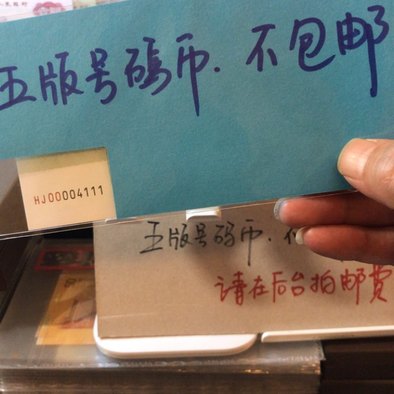 五版号码币.不包邮
HJ00004111
五版号码币.不
请在后台拍邮费